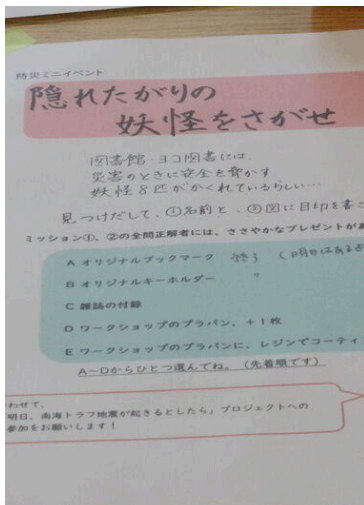 防災ミニイベント
隠れたがりの
妖怪をさがせ
図書館・ヨコ図書には、
災害のときに安全を脅かす
妖怪8匹がかくれているらしい…
見つけだして、①名前と、②図に目印を書こ
ミッション①、②の全問正解者には、ささやかなプレゼントがあ
A オリジナルブックマーク 終了 (明日はあるよ
B オリジナルキーホルダー 〃
C 雑誌の付録
D ワークショップのプラバン、+1枚
E ワークショップのプラバンに、レジンでコーティ
A~Dからひとつ選んでね。(先着順です)
わせて、
明日、南海トラフ地震が起きるとしたら」プロジェクトへの
参加をお願いします!